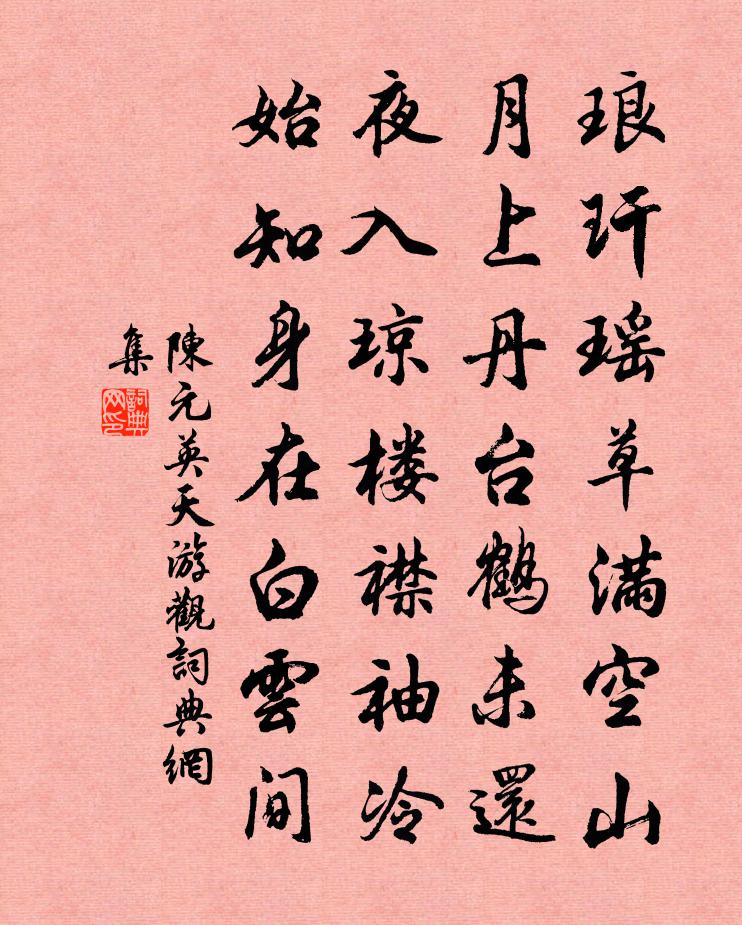 琅玕瑶草满空山
月上丹台鹤未還
夜入琼楼襟袖冷
始知身在白雲间
陳元英天游觀詞典網
集
詞典
网印